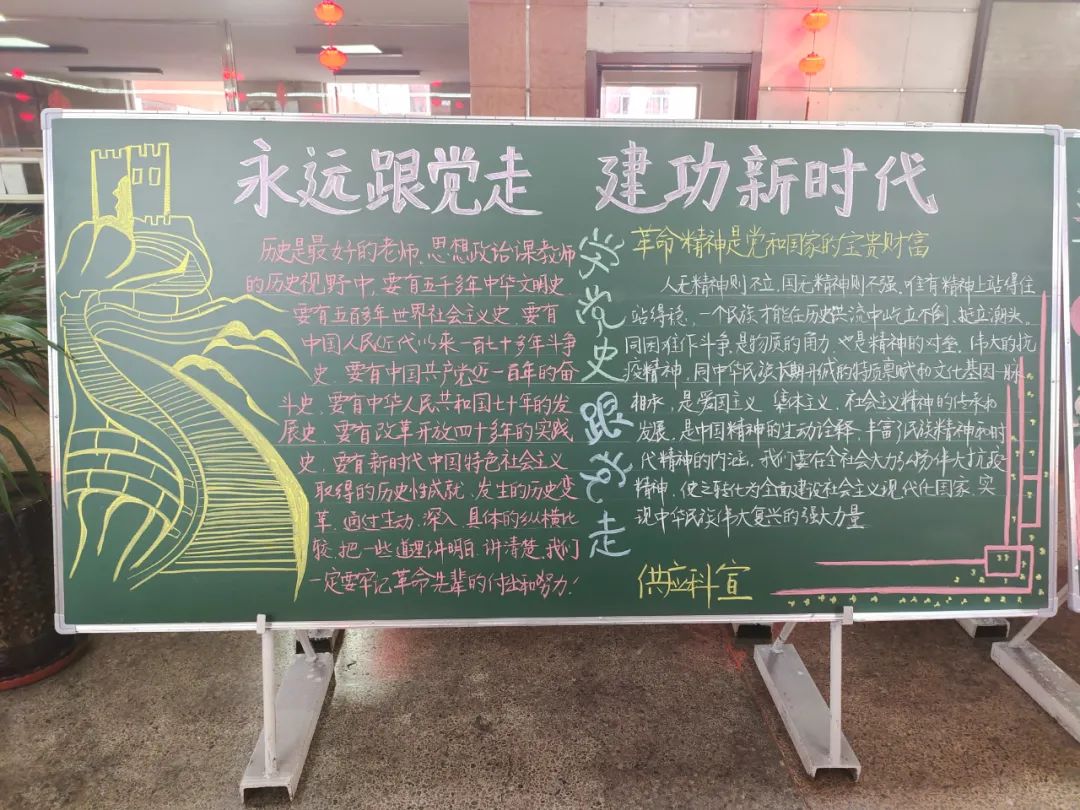 永远跟党走 建功新时代
历史是最好的老师,思想政治课教师
的历史视野中,要有五千多年中华文明史,
要有五百多年世界社会主义史,要有
中国人民近代以来一百七十多年斗争
史,要有中国共产党近一百年的奋
斗史,要有中华人民共和国七十年的发
展史,要有改革开放四十多年的实践
史,要有新时代中国特色社会主义
取得的历史性成就、发生的历史变
革,通过生动、深入、具体的纵横比
较,把一些道理讲明白、讲清楚,我们
一定要牢记革命先辈的付出和努力!
学党史跟党走
革命精神是党和国家的宝贵财富
人无精神则不立,国无精神则不强。唯有精神上站得住
站得稳,一个民族才能在历史洪流中屹立不倒、挺立潮头。
同困难作斗争,是物质的角力,也是精神的对垒。伟大的抗
疫精神,同中华民族长期形成的特质禀赋和文化基因一脉
相承,是爱国主义、集体主义、社会主义精神的传承和
发展,是中国精神的生动诠释,丰富了民族精神和时
代精神的内涵。我们要在全社会大力弘扬伟大抗疫
精神,使之转化为全面建设社会主义现代化国家、实
现中华民族伟大复兴的强大力量
供应科宣